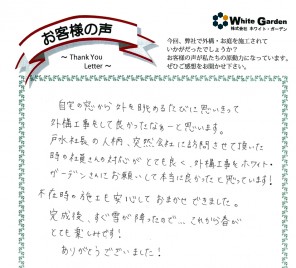 お客様の声
～ Thank You
Letter ～
White Garden
株式会社 ホワイト・ガーデン
今回、弊社で外構・お庭を施工されて
いかがだったでしょうか？
お客様の声が私たちの原動力になっています。
ぜひご感想をお聞かせ下さい。
自宅の窓から外を眺めるたびに思いきって
外構工事をして良かったなぁーと思います。
戸水社長の人柄、突然会社に訪問させて頂いた
時の社員さんの対応がとても良く、外構工事をホワイト・
ガーデンさんにお願いして本当に良かったと思っています！
不在時の施工も安心しておまかせできました。
完成後、すぐ雪が降ったので… これから春が
とても楽しみです！
ありがとうございました！